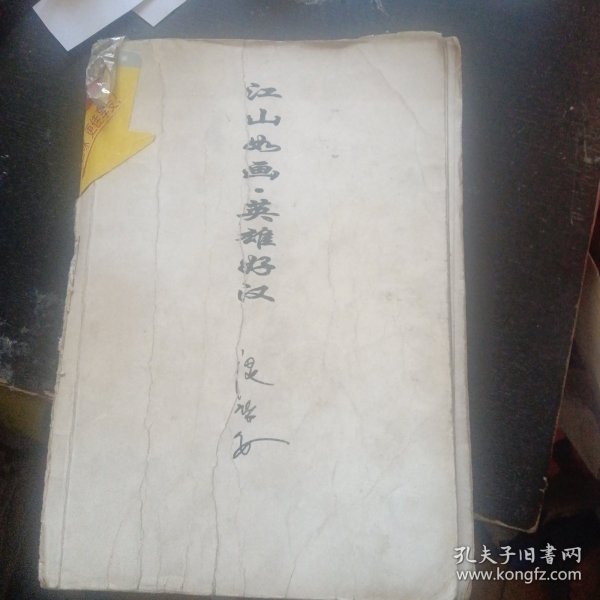 江山如画·英雄好汉
孔夫子旧书网
www.kongfz.com